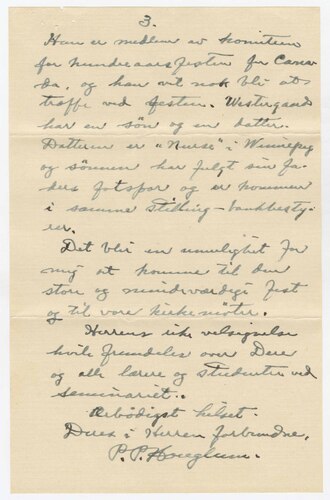 3.
Han er medlem av komiteen
for hundreaarsfesten for Cana-
da, og han vil nok bli at
træffe ved festen. Westergaard
har en søn og en datter.
Datteren er "Nurse" i Winnepeg
og sønnen har fulgt sin fa-
ders fotspor og er kommen
i samme Stilling - bankbesty-
rer.
Det blir en umulighet for
mig at komme til den
store og mindeværdige fest
og til vore kirkemøter.
Herrens rike velsignelse
hvile fremdeles over Dere
og alle lærere og studenter ved
seminariet.
Ærbødigst hilset.
Deres i Herren forbundne,
P. P. Hauglum.